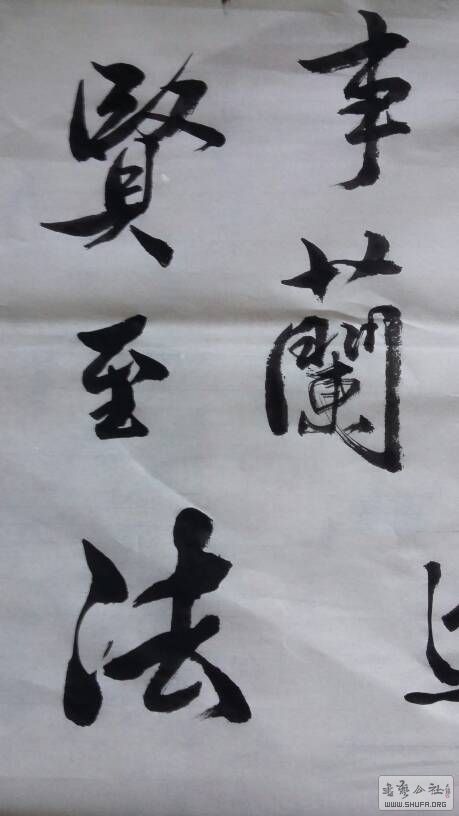 事蘭
賢至法
書藝公社
WWW.SHUFA.ORG